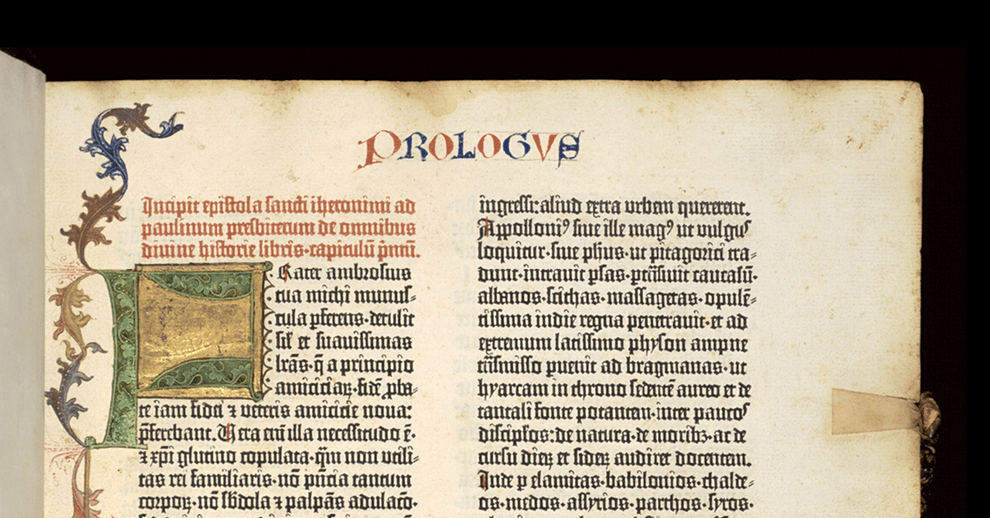 PROLOGVS
Incipit epistola sancti iheronimi ad
paulinum presbiterum de omnibus
divine historie libris·capitulū pmū.
Frater ambrosius
tua michi munus-
cula pferens·detulit
sil̄ et suavissimas
lrās·q̄ a principio
amiciciaꝝ·fidē pba-
te iam fidei ⁊ veteris amicicie nova:
pferebant. Vera eni illa necessitudo ē·
⁊ xpi glutino copulata·qm̄ non utili-
tas rei familiaris·nō pn̄cia tantum
corpoꝝ·nō sbdola ⁊ palpās adulacō·
ingressi:aliud extra urbem quererent.
Appolloniꝰ sive ille magꝰ ut vulgus
loquitur·sive phus·ut pitagorici tra-
dunt·intravit psas·ptn̄sivit caucasū·
albanos·scithas·massagetas·opulē-
tissima indie regna penetravit·et ad
extremum latissimo physon ampne
tn̄smisso pvenit ad bragmanas·ut
hyarcam in throno sedentē aureo et de
tantali fonte potantem·inter paucos
discipłos:de natura·de moribꝫ·ac de
cursu dieꝝ et sideꝝ audiret docentem.
Inde p elamitas·babilonios·chalde-
os·medos·assyrios·parthos·syros·